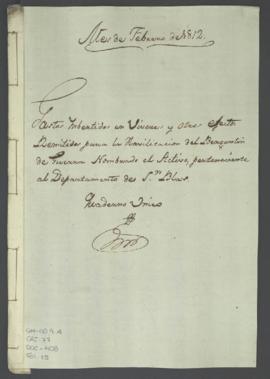 Mes de Febrero de 1812.
Gastos Imbertidos en Viveres y otros efectos
Remitidos para la Havilitacion del Bergantin
de Guerra Nombrado el Activo, perteneciente
al Departamento de Sn. Blas.
Quaderno Unico
CAJ. 77